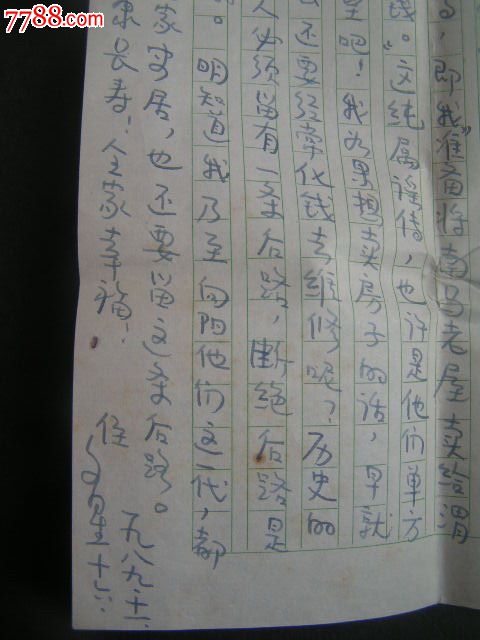 7788.com
，即我“准备将南马老屋卖给渭
钱。”这纯属谣传，也许是他们单方
吧！我如果想卖房子的话，早就
还要经常化钱去维修呢？历史的
人必须留有一条后路，断绝后路是
。明知道我乃至向阳他们这一代，都
家安居，也还要留这条后路。
康长寿！全家幸福！
侄